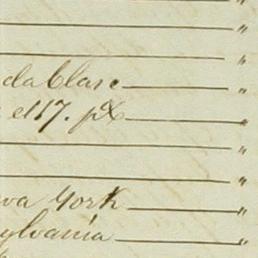 "
"
"
da Clase "
el 17. px "
"
"
va York "
ylvania "